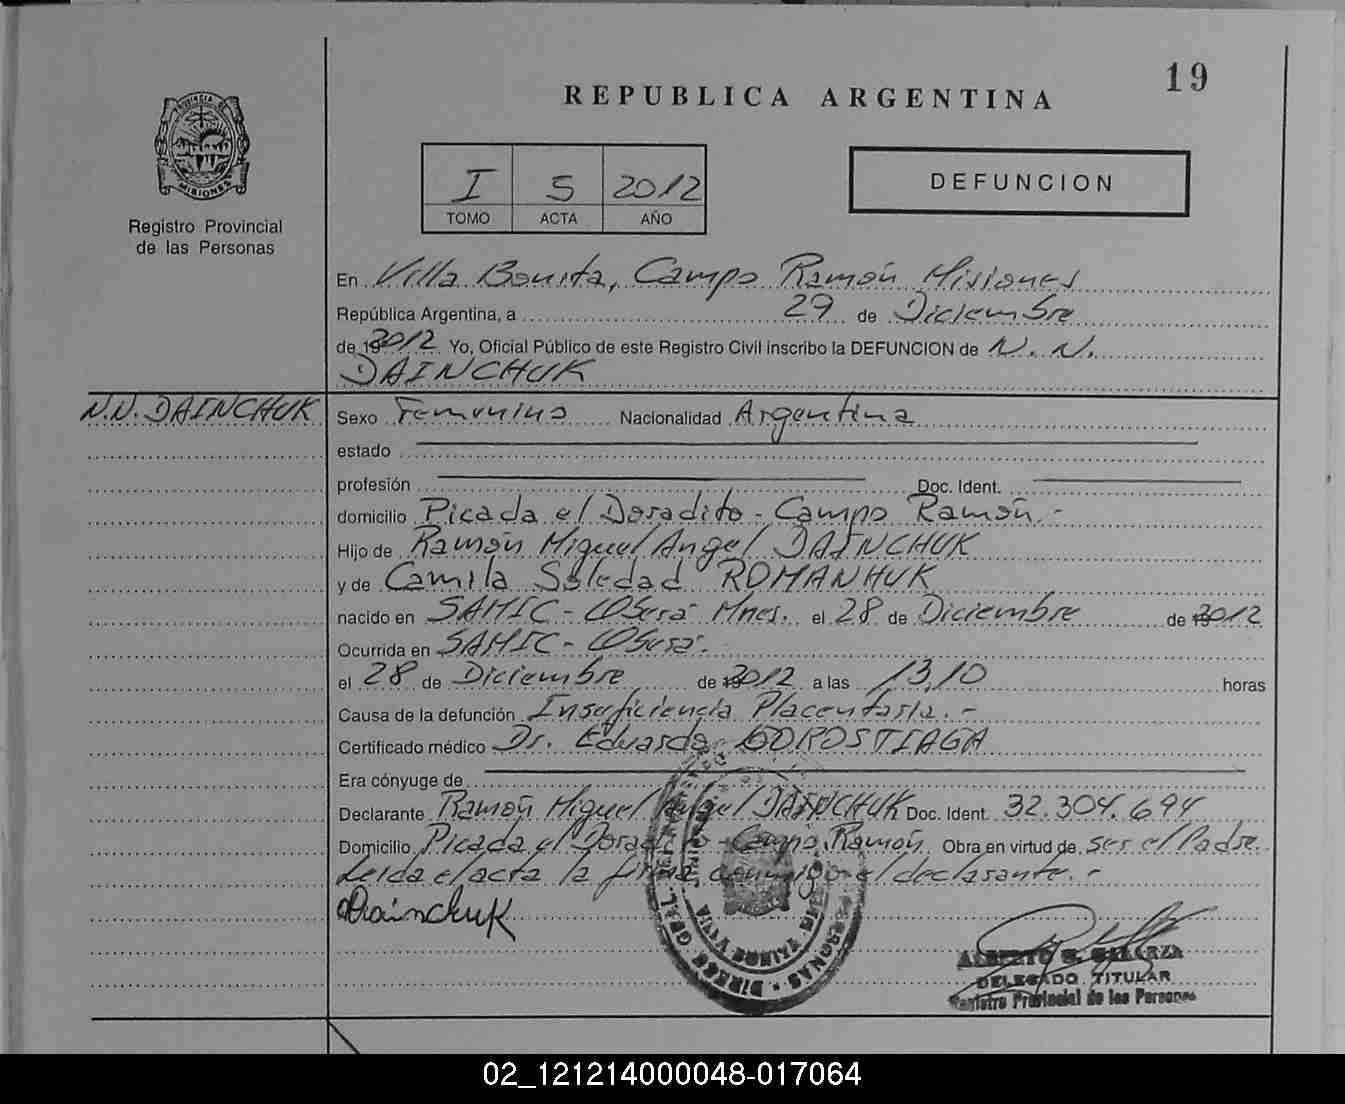 19
REPUBLICA ARGENTINA
PROVINCIA DE
MISIONES
Registro Provincial
de las Personas
I 5 2012
TOMO ACTA AÑO
DEFUNCION
En Villa Bonita, Campo Ramón Misiones
República Argentina, a 29 de Diciembre
de 2012 Yo, Oficial Público de este Registro Civil inscribo la DEFUNCION de N. N.
DAINCHUK
N.N. DAINCHUK
Sexo Femenino Nacionalidad Argentina
estado
profesión Doc. Ident.
domicilio Picada el Doradito - Campo Ramón.-
Hijo de Ramón Miguel Angel DAINCHUK
y de Camila Soledad ROMANHUK
nacido en SAMIC - Oberá Mnes. el 28 de Diciembre de 2012
Ocurrida en SAMIC - Oberá.
el 28 de Diciembre de 2012 a las 13,10 horas
Causa de la defunción Insuficiencia Placentaria.-
Certificado médico Dr. Eduardo GOROSTIAGA
Era cónyuge de
Declarante Ramón Miguel Angel DAINCHUK Doc. Ident. 32.304.694
Domicilio Picada el Doradito - Campo Ramón. Obra en virtud de ser el Padre
Leida el acta la firma conmigo el declarante.-
Dainchuk
DELEGADO TITULAR
Registro Provincial de las Personas
02_121214000048-017064